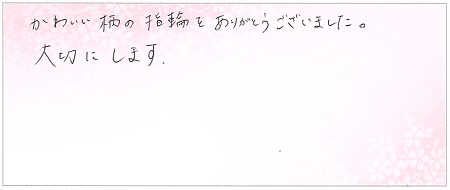 かわいい柄の指輪をありがとうございました。
大切にします.